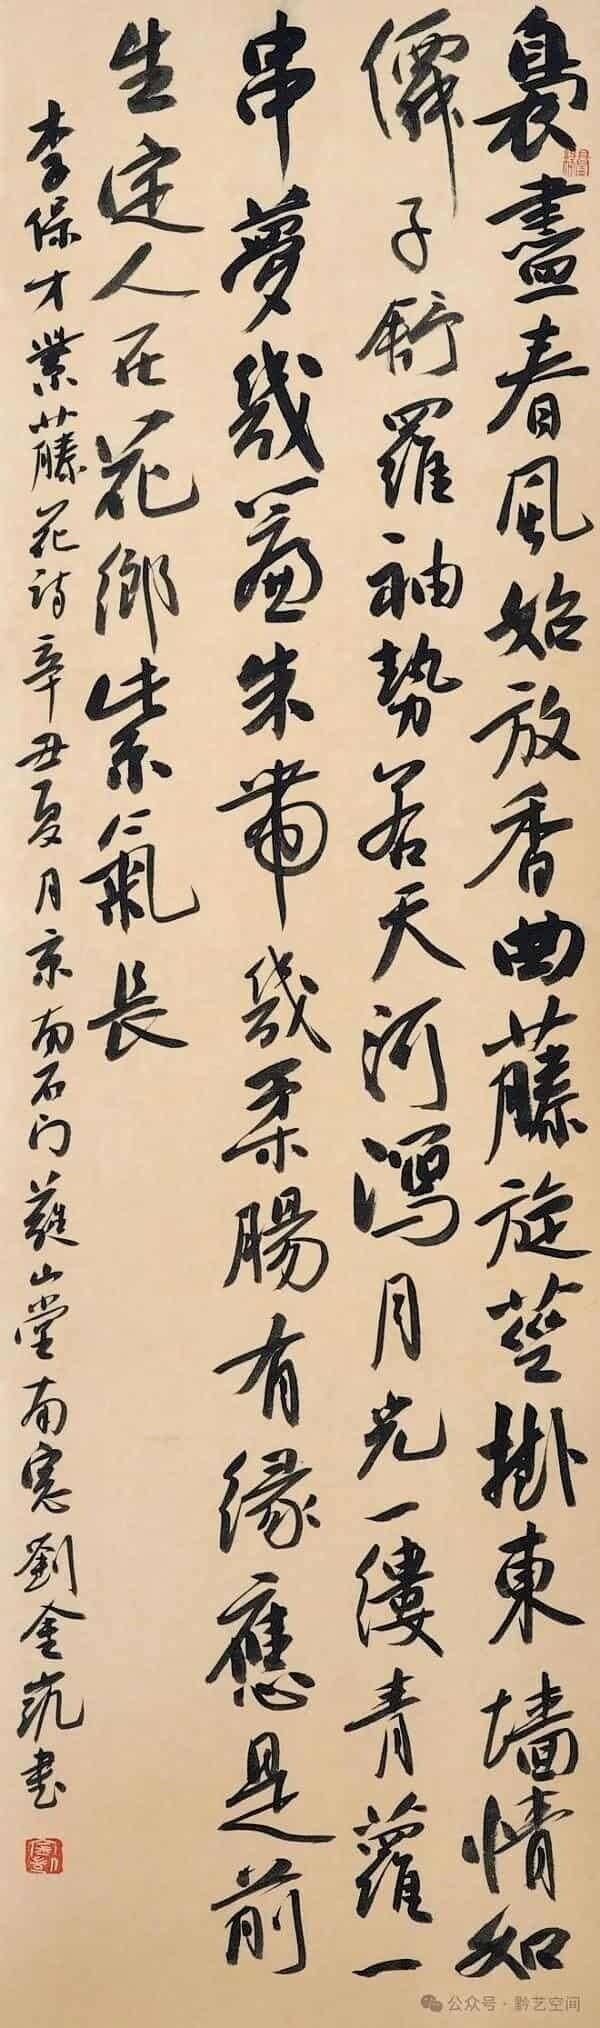 裊盡春風始放香曲藤旋莖掛東墻情如
僊子舒羅袖勢若天河瀉月光一縷青蘿一
串夢幾簾朱帶幾柔腸有緣應是前
生定人在花鄉紫氣長
李保才紫藤花詩辛丑夏月京南石門蕤山堂南窗劉金凱書
公众号·黔艺空间